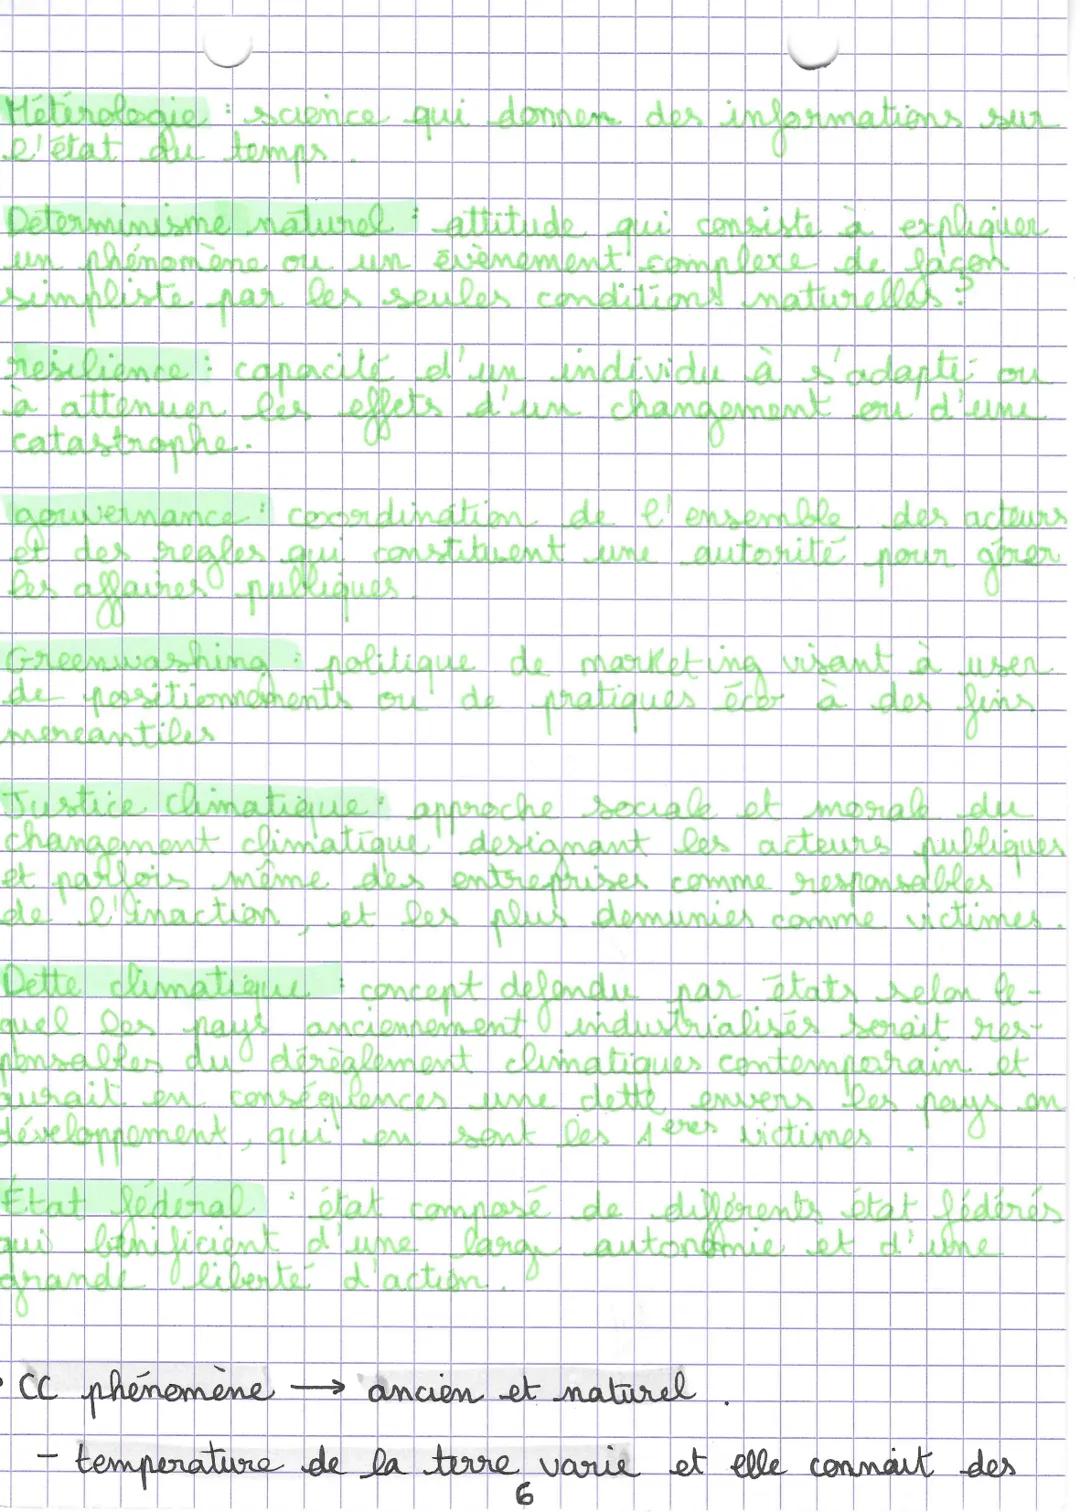 Météorologie : science qui donnen des informations sur
l'état du temps.
Determinisme naturel : attitude qui consiste à expliquer
un phénomène ou un évènement complexe de façon
simpliste par les seules conditions naturelles.
résilience : capacité d'un individu à s'adapté ou
à attenuer les effets d'un changement ou d'une
catastrophe.
gouvernance : coordination de l'ensemble des acteurs
et des regles qui constituent une autorité pour gérer
les affaires publiques.
Greenwashing : politique de marketing visant à user
de positionnements ou de pratiques éco à des fins
mercantiles
Justice climatique : approche sociale et morale du
changement climatique designant les acteurs publiques
et parfois même des entreprises comme responsables
de l'inaction, et les plus demunies comme victimes.
Dette climatique : concept defendu par états selon le-
quel les pays anciennement industrialisés serait res-
ponsables du dérèglement climatiques contemporain et
aurait en conséquences une dette envers les pays en
développement, qui en sont les 1eres victimes.
Etat fédéral : état composé de différents état fédérés
qui bénificient d'une large autonomie et d'une
grande liberté d'action.
• CC phénomène → ancien et naturel.
- temperature de la terre varie et elle connait des
6